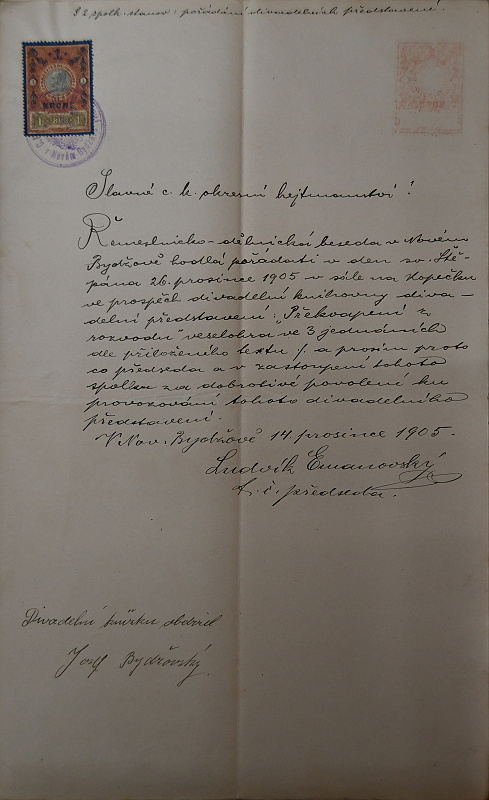 § 2 spolk. stanov: pořádání divadelních představení.
1
KRONE
v Novém Bydž
Slavné c. k. okresní hejtmanství!
Řemeslnicko-dělnická beseda v Novém
Bydžově hodlá pořádati v den sv. Ště-
pána 26. prosince 1905 v sále na Kopečku
ve prospěch divadelní knihovny diva-
delní představení: "Překvapení z
rozvodu" veselohra ve 3 jednáních
dle přiloženého textu /. a prosím proto
co předseda a v zastoupení tohoto
spolku za dobrotivé povolení ku
provozování tohoto divadelního
představení.
V Nov. Bydžově 14. prosince 1905.
Ludvík Emanovský
t. č. předseda.
Divadelní knížku obdržel
Josef Bydžovský